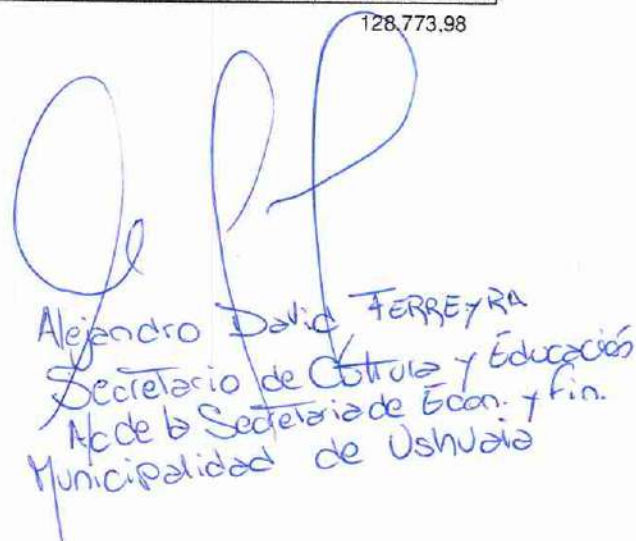 128.773,98
Alejandro David FERREYRA
Secretario de Cultura y Educación
A/c de la Secretaria de Econ. y Fin.
Municipalidad de Ushuaia